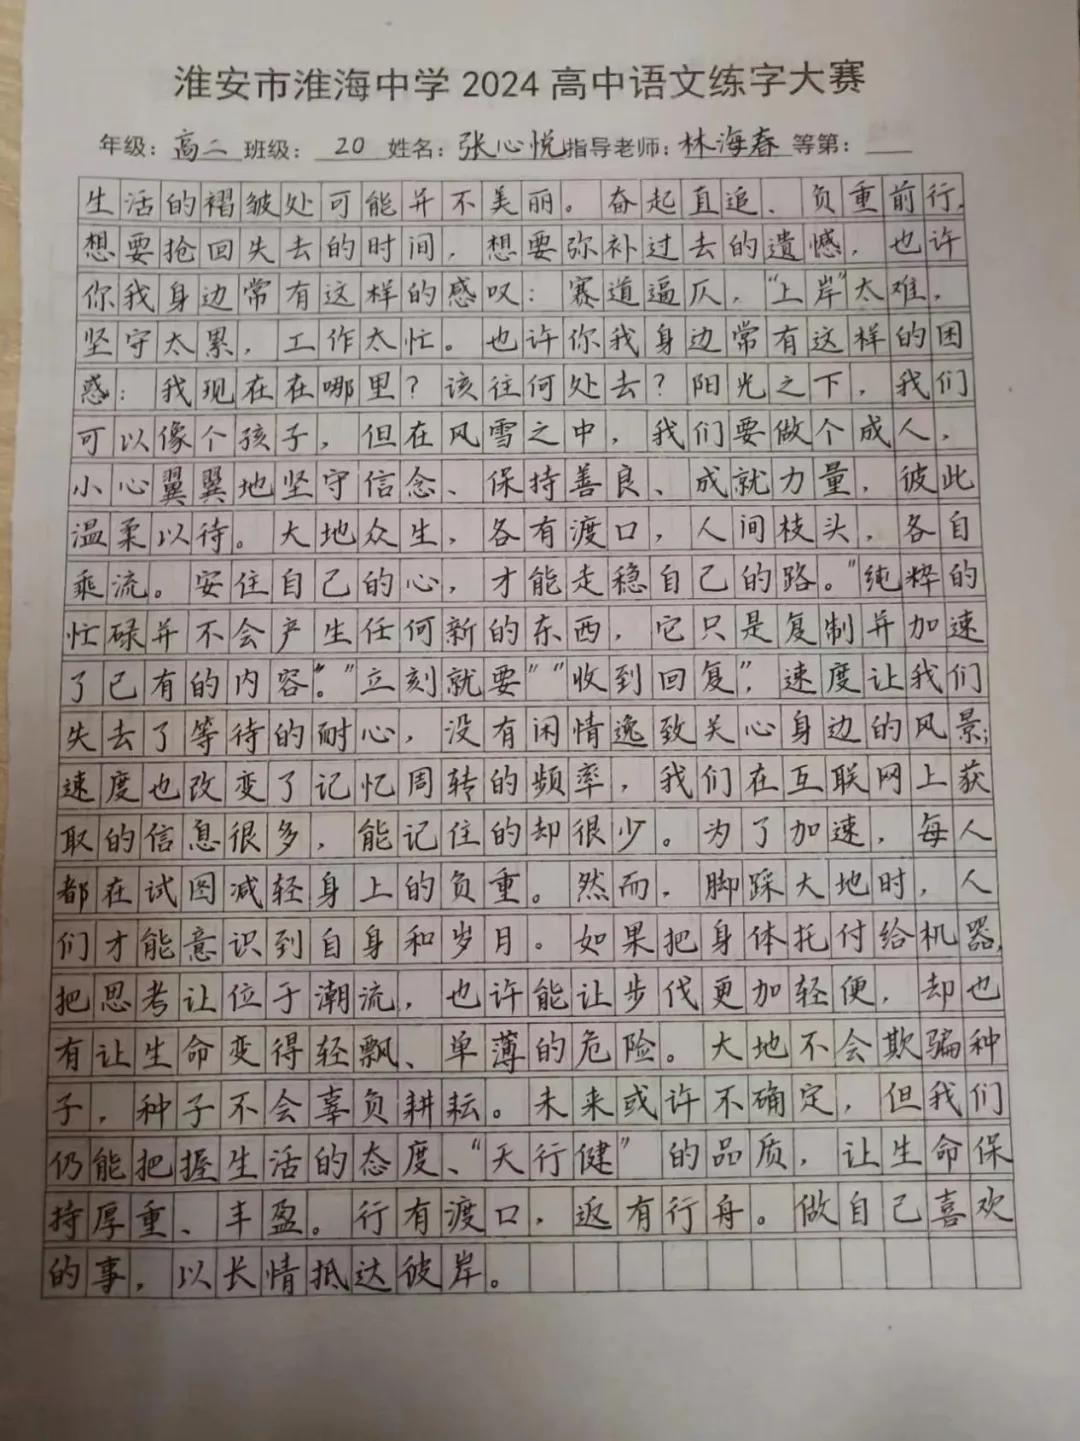 淮安市淮海中学2024高中语文练字大赛
年级：高二 班级：20 姓名：张心悦 指导老师：林海春 等第：
生活的褶皱处可能并不美丽。奋起直追、负重前行，
想要抢回失去的时间，想要弥补过去的遗憾，也许
你我身边常有这样的感叹：赛道逼仄，“上岸”太难，
坚守太累，工作太忙。也许你我身边常有这样的困
惑：我现在在哪里？该往何处去？阳光之下，我们
可以像个孩子，但在风雪之中，我们要做个成人，
小心翼翼地坚守信念、保持善良、成就力量，彼此
温柔以待。大地众生，各有渡口，人间枝头，各自
乘流。安住自己的心，才能走稳自己的路。“纯粹的
忙碌并不会产生任何新的东西，它只是复制并加速
了已有的内容”。“立刻就要”“收到回复”，速度让我们
失去了等待的耐心，没有闲情逸致关心身边的风景；
速度也改变了记忆周转的频率，我们在互联网上获
取的信息很多，能记住的却很少。为了加速，每人
都在试图减轻身上的负重。然而，脚踩大地时，人
们才能意识到自身和岁月。如果把身体托付给机器，
把思考让位于潮流，也许能让步伐更加轻便，却也
有让生命变得轻飘、单薄的危险。大地不会欺骗种
子，种子不会辜负耕耘。未来或许不确定，但我们
仍能把握生活的态度、“天行健”的品质，让生命保
持厚重、丰盈。行有渡口，返有行舟。做自己喜欢
的事，以长情抵达彼岸。